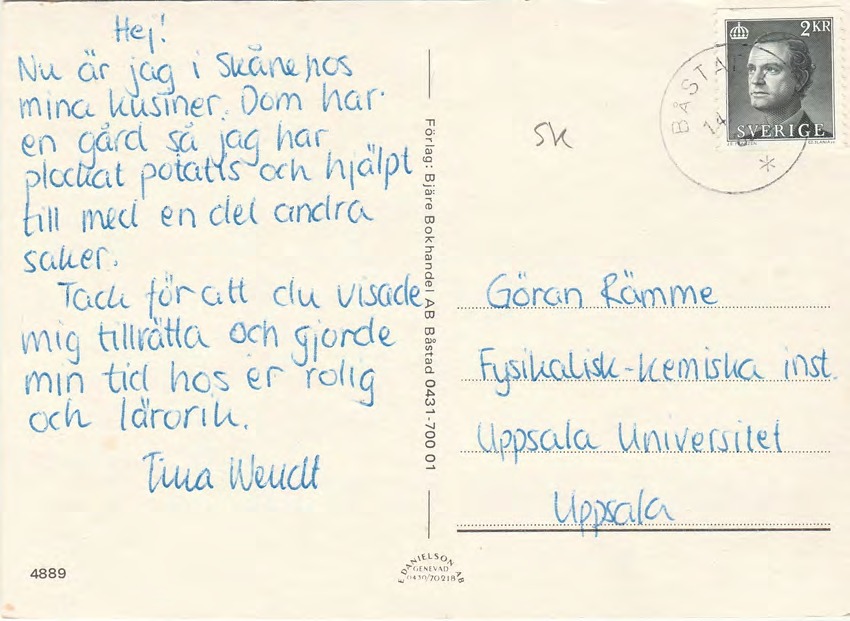 Hej!
Nu är jag i Skåne hos
mina kusiner. Dom har
en gård så jag har
plockat potatis och hjälpt
till med en del andra
saker.
Tack för att du visade
mig tillrätta och gjorde
min tid hos er rolig
och lärorik.
Tina Wendt
4889
Förlag: Bjäre Bokhandel AB Båstad 0431-700 01
E DANIELSON AB
GENEVAD
0430/70218
SK
BÅSTA
14
2 KR
SVERIGE
Göran Rämme
Fysikalisk-kemiska inst.
Uppsala Universitet
Uppsala